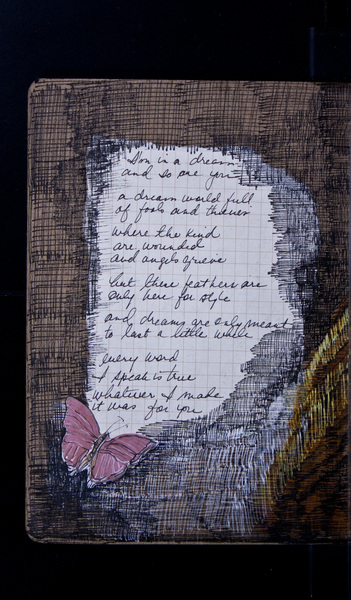 I'm in a dream
and so are you
a dream world full
of fools and thieves
where the kind
are wounded
and angels grieve
but these feathers are
only here for style
and dreams are only meant
to last a little while
every word
I speak is true
whatever I made
it was for you